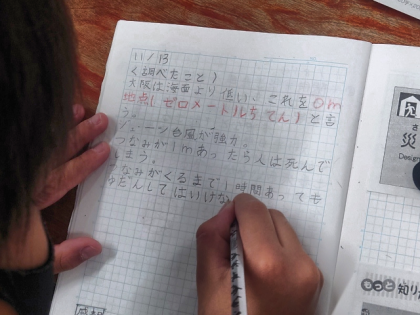 11/13
〈調べたこと〉
大阪は海面より低い。これを0m
地点(ゼロメートルちてん)と言
う。
ジェーン台風が強力。
つなみが1mあったら人は死んで
しまう。
つなみがくるまで1時間あっても
ゆだんしてはいけな
感想
災
Design
もっと知り